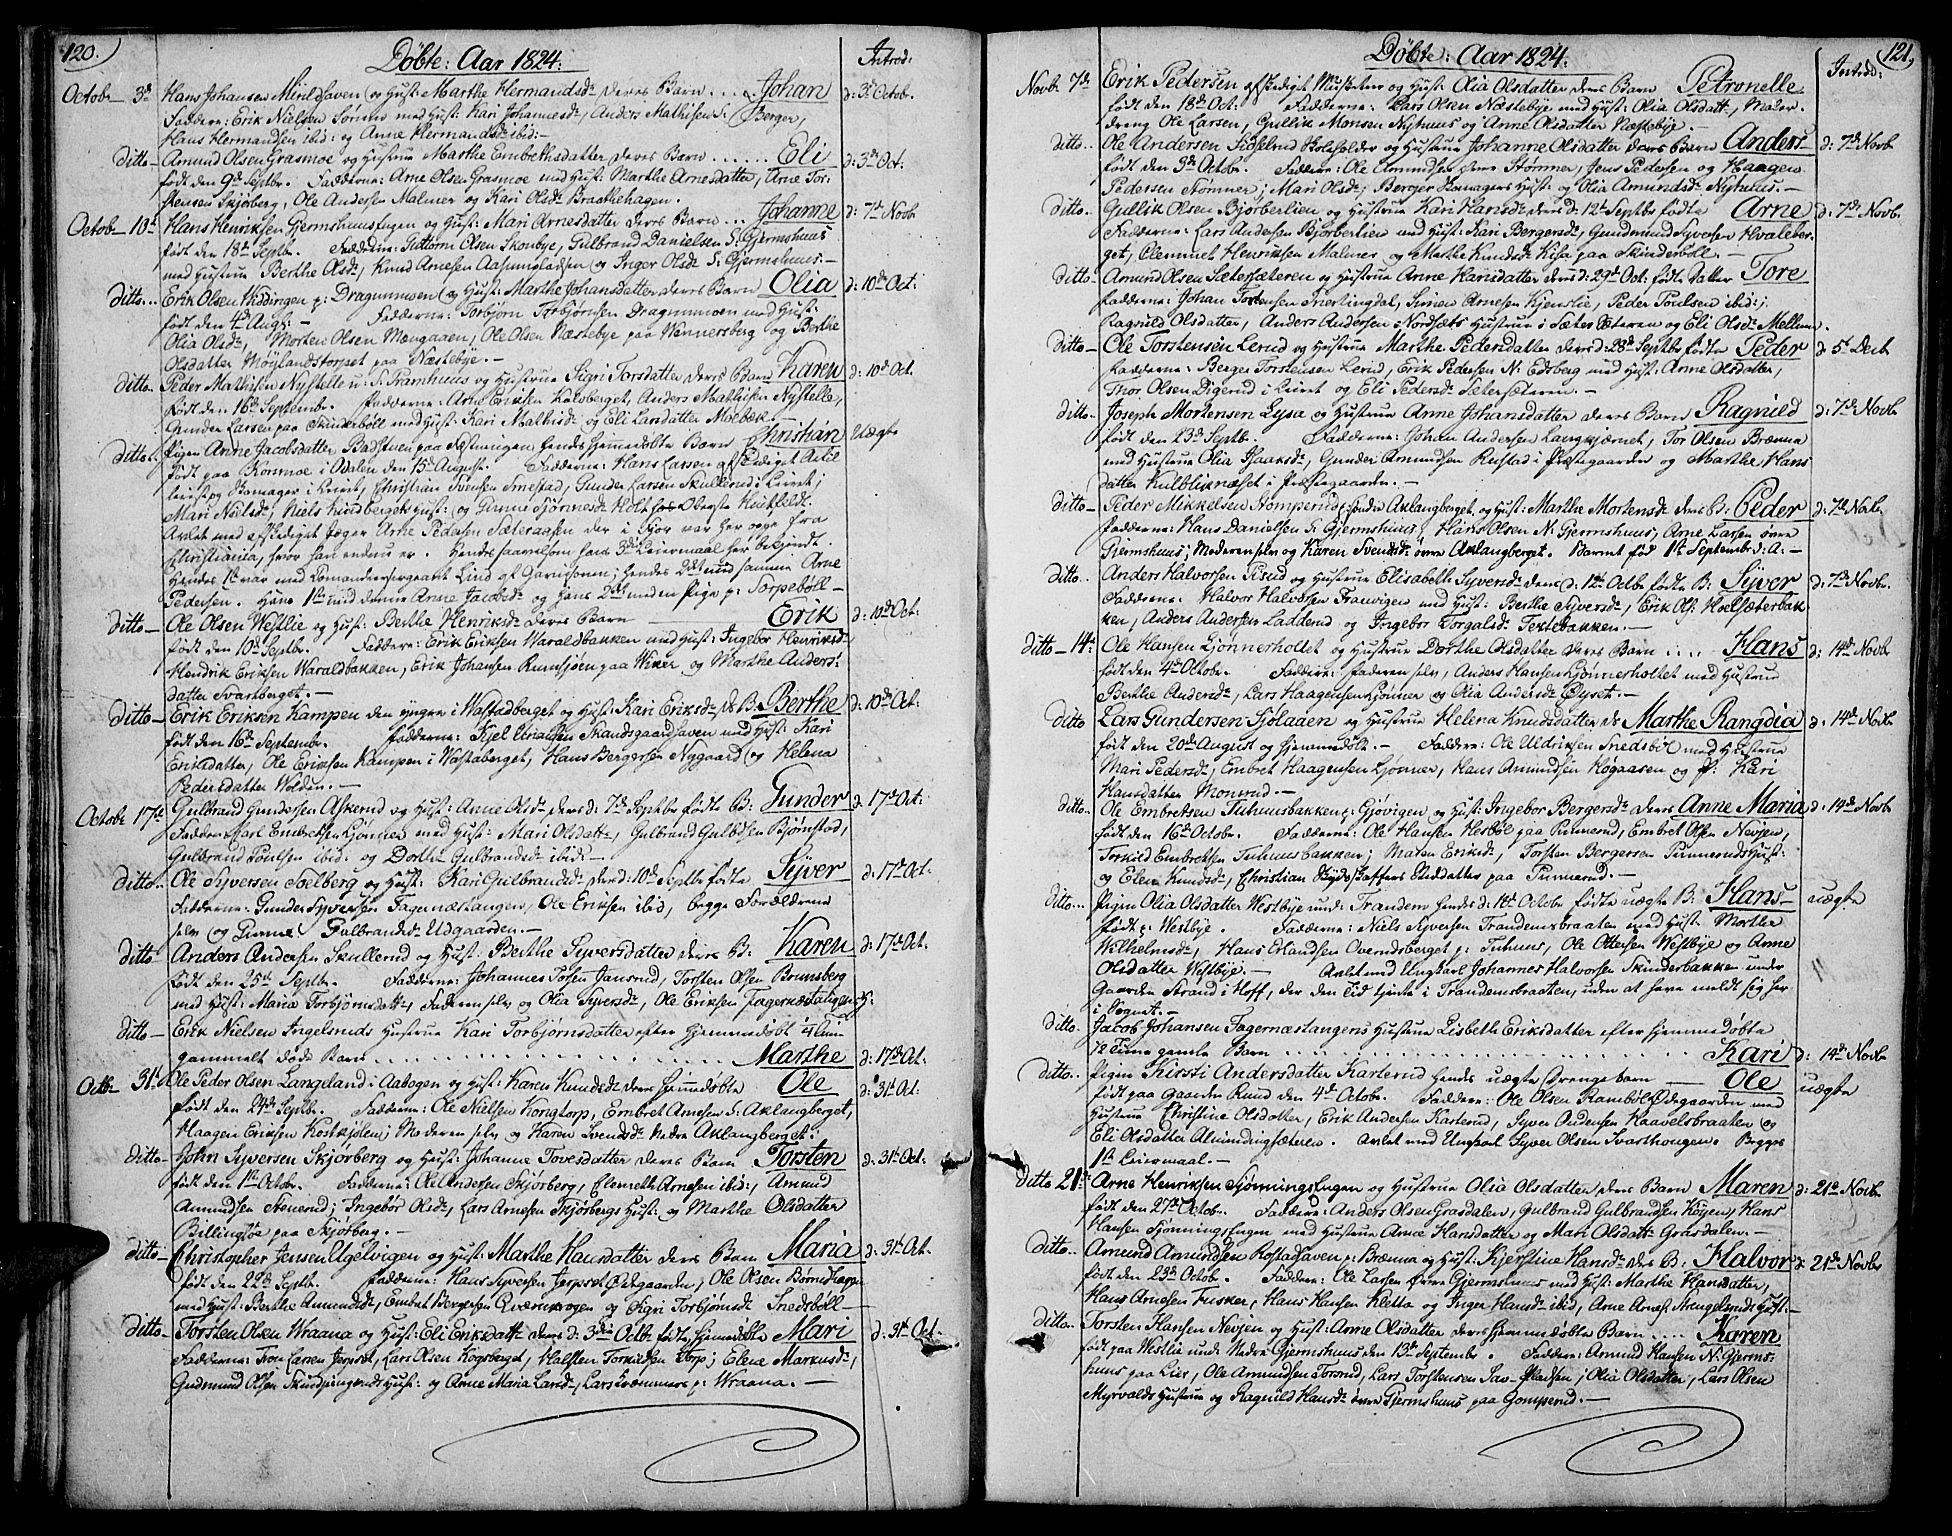 120.
Døbte: Aar 1824.
Introd:
Octob- 3d Hans Johansen og Hust: Marthe Hermandsd: deres Barn Johan d: 3d Octob.
Fadderne: Erik Nielsen med Hust: Kari Johannesd:, Anders Mathisen S: Berger,
Hans Hermandsen ibid: og Anne Hermandsd: ibid:-
ditto- Amund Olsen Grasmoe og Hustrue Marthe Embrethsdatter deres Barn ...... Eli d: 3d Oct.
født den 9d Septbr. Fadderne: Arne Olsen Grasmoe med Hust: Marthe Arnesdatter, Arne Tor-
stensen Skjørberg, Ole Andersen Malmer og Kari Olsd: Braathehagen.
Octob- 10d Hans Henriksen Gjermshuusengen og Hust: Mari Arnesdatter deres Barn ... Johanne d: 7d Novb
født den 18d Septb. Fadderne: Guttorm Olsen Skonbye, Gulbrand Danielsen S: Gjermshuus
med Hustrue Berthe Olsd:, Knud Arnesen og Inger Olsd: S: Gjermshuus.-
ditto... Erik Olsen Widdingen p: Dragonmoen og Hust: Marthe Johansdatter deres Barn Olia d: 10d Oct:
født den 4d Aug: - Fadderne: Torbjørn Torbjørnsen Dragonmoen med Hust:
Olia Olsd:, Morten Olsen Mangaaen, Ole Olsen Næstebye paa Wennersberg og Berthe
Olsdatter Møylandstorpet paa Næstebye.-
ditto- Peder Mathisen Nystelle og Hustrue Sigri Torsdatter deres Barn Karen d: 10d Oct.
født den 16d Septembr. Fadderne: Arne Eriksen Kalsberget, Anders Mathisen Nystelle,
Gunder Larsen paa Skinderbøll med Hust: Kari Mathisd: og Eli Larsdatter Molbæk.-
ditto. Pigen Anne Jacobsdatter Badstuen paa Fæstningen hendes hjemmedøbte Barn Christian uægte
født paa Konsmoe i Odalen den 15d August. Fadderne: Hans Larsen afskediget Artil-
lerist og i Leiret, Christian Svensen Smestad, Gunder Larsen Skullerud i Leiret;
Mari Nielsd:, Niels Hust: og Gunne Hos Oberste Huitfeldt.
Avlet med afskediget Jæger Arne Pedersen Sæteraasen der i Fjor var her oppe fra
Christiania, hvor han endnu er. Hendes saavelsom hans 3d Leiermaal her bekjendt.
Hendes 1st var med Comandeersergeant Lind af Garnisonen; hendes 2det med samme Arne
Pedersen. Hans 1st med denne Anne Jacobsd: og hans 2det med en Pige p: Torpebøll-
ditto- Ole Olsen Westlie og Hust: Berthe Henriksd: deres Barn Erik d: 10d Oct:
født den 10d Septb. Fadderne: Erik Eriksen Waraldbakken med Hust: Ingebor Henriksd:
Hendrik Eriksen Waraldbakken, Erik Johansen Runnsjøen paa Wiker og Marthe Anders-
datter Svartberget.-
ditto- Erik Eriksen Kampen den yngre i Wastadberget og Hust: Kari Eriksd: ds B: Berthe d: 10d Oct:
født den 16d Septembr. Fadderne: Kjel Skandsgaardhaven med Hust: Kari
Eriksdatter, Ole Eriksen Kampen i Wastaberget, Hans Bergersen Nygaard og Helena
Pedersdatter Wolden.-
Octobr 17d Gulbrand Gundersen Askerud og Hust: Anne Olsd: deres d: 7d Septbr fødte B: Gunder d: 17d Oct:
Faddere: Carl Embretsen Lønner med Hust: Mari Olsdatt-, Gulbrand Gulbrsen Bjørnstad,
Gulbrand Poulsen ibid: og Dorthe Gulbrandsd: ibid:-
ditto. Ole Syversen Solberg og Hust: Kari Gulbrandsd: deres d: 10d Septbr fødte Syver d: 17d Oct.
Fadderne: Gunder Syversen Fagernæstangen, Ole Eriksen ibid, begge Forældrene
selv og Gunne Gulbrandsd: Udgaarden.-
ditto- Anders Andersen Skullerud og Hust: Berthe Syversdatter deres B: Karen d: 17d Oct.
født den 25d Septbr. Fadderne: Johannes Torsen Jansrud, Torsten Olsen Brunsberg
med Hust: Maria Torbjørnsdatt-, Faderen selv og Olia Syversd:, Ole Eriksen Fagernæstangens H:
ditto- Erik Nielsen Ingelsruds Hustrue Kari Torbjørnsdatter efter Hjemmedøbt
gammelt døde Barn Marthe d: 17d Oct.
Octb- 31d Ole Peder Olsen Langeland i Aabogen og Hust: Karen Knudsd: deres hjemmedøbte Ole d: 31d Oct:
født den 24d Septbr. Fadderne: Ole Nielsen Kongtorp, Embret Arnesen S: Aklangberget,
Haagen Eriksen Kostkjølen; Moderen selv og Karen Svendsd: Nedre Aklangberget;
ditto- John Syversen Skjørberg og Hust: Johanne Tovesdatter deres Barn Torsten d: 31d Oct.
født den 1st Octobr. Fadderne: Ole Andersen Skjørberg, Clemeth Arnesen ibid:, Amund
Amundsen Stenerud; Ingebor Olsd:, Lars Arnesen Skjørbergs Hust: og Marthe Olsdatter
Billingtøe paa Skjørberg.-
ditto- Christopher Jensen Ugelvigen og Hust: Marthe Hansdatter deres Barn Maria d: 31d Oct.
født den 22d Septb. Fadderne: Hans Syversen Jerpset Ødegaarden, Ole Olsen
med Hust: Berthe Amundsd:, Embret Bergersen og Sigri Torbjørnsd: Snedsbøll-
ditto- Torsten Olsen Wraana og Hust: Eli Eriksdatt- deres d: 3die Octbr fødte hjemmedøbte Mari d: 31d Oct.
Fadderne: Tron Larsen Jerpset, Lars Olsen Kogsberget, Halsten Torkildsen Torp; Elene Markusd:,
Gudmund Olsen Hust: og Anne Maria Larsd-, Lars p: Wraana.-
121.
Døbte: Aar 1824.
Introd:
Novb- 7d Erik Pedersen afskediget Musketeer og Hust: Olia Olsdatter deres Barn Petronelle
født den 18d Oct. Fadderne: Lars Olsen Næstebye med Hust: Olia Olsdatt-, Maler-
dreng Ole Larsen, Gullik Monsen Nyhuus og Anne Olsdatter Næstebye.-
ditto- Ole Andersen Sigelrud og Hustrue Johanne Olsdatter deres Barn Anders- d: 7d Novb
født den 9d Octbr. Fadderne: Ole Amundsen Størmer, Jens Pedersen og Haagen
Pedersen Størmer; Mari Olsd:, Berger Hust: og Olia Amundsd: Nyhuus.-
ditto- Gullik Olsen Bjørberlien og Hustrue Kari Hansd: deres d: 12d Septbr fødte Arne d: 7d Novb.
Fadderne: Lars Andersen Bjørberlien med Hust: Kari Bergersd:, Gundmund Syversen Hvalsber-
get, Clemmet Henriksen Malmer og Marthe Knudsd: Kisa paa Skinderbøll.-
ditto- Amund Olsen Sætersæteren og Hustrue Anne Hansdatter deres d: 29d Oct: født Datter Tore
Fadderne: Johan Torstensen Tiertingdal, Simen Arnesen Kjenslie, Peder Poulsen ibid:;
Ragnild Olsdatter, Anders Andersen Nordsæts Hustrue i Sætersæteren og Eli Olsd: Mellum.
ditto- Ole Torstensen Lerud og Hustrue Marthe Pedersdatter deres d: 28d Septbr fødte Peder d: 5d Decb
Fadderne: Berger Torstensen Lerud, Erik Pedersen N: Edsberg med Hust: Arne Olsdatter,
Thor Olsen Digerud i Leiret og Eli Pedersd: Sætersæteren.-
ditto- Joseph Mortensen Lysa og Hustrue Anne Johansdatter deres Barn Ragnild d: 7d Novb
født den 23d Septb. Fadderne: Johan Andersen Langkjærnet, Tor Olsen Brænna
med Hustrue Olia Isaaksd:, Gunder Amundsen Rustad i Præstegaarden og Marthe Hans
datter Kulbliknæset i Præstegaarden.-
ditto- Peder Mikkelsen Gomperud, Søndre Aklangberget, og Hust: Marthe Mortensd: deres B: Peder d: 7d Novb
Fadderne: Hans Danielsen S: Gjermshuus, Hans Olsen N: Gjermshuus, Arne Larsen øvre
Gjermshuus; Moderen selv og Karen Svendsd: øvre Aklangberget. Barnet fød 1st Septembr d: A:-
ditto- Anders Halvorsen Tisud og Hustrue Elisabeth Syversd: deres d: 12d Octbr fødte B: Syver d: 7d Novb.
Fadderne: Halvor Halvorsen Tranvigen med Hust: Berthe Syversd:, Erik Ols:
ken, Anders Andersen Laddend og Ingebor Torgalsd: Tertebakken.-
ditto- 14d Ole Hansen Lønnerholdet og Hustrue Dorthe Olsdatter deres Barn .... Hans d: 14d Novb
født den 4d Octobr. Fadderne: Faderen selv, Anders Hansen Lønnerholtet med Hustrue
Berthe Andersd:, Lars Haagensen Lønner og Olia Andersd: Øyset.-
ditto Lars Gundersen Tjolaaen og Hustrue Helena Knudsdatter ds Marthe Rangdia d: 14d Novb
født den 20d August og hjemmedøbt.- Faddere: Ole Uldriksen Snedsbøl med Hustrue
Mari Pedersd:, Embret Haagensen Lønner, Hans Amundsen Høgaasen og P: Kari
Hansdatter Monsrud.-
ditto- Ole Embretsen Tuhuusbakken p: Gjøvigen og Hust: Ingebor Bergersd: deres Anne Maria d: 14d Novb
født den 16d Octobr. Fadderne: Ole Hansen Hesbøl paa Punnerud, Embret Olsen Nevjen,
Torkild Embretsen Tuhuusbakken; Maren Eriksd:, Torsten Bergersen Punneruds Hust:
og Elen Knudsd:, Christian Stifdatter paa Punnerud.-
ditto... Pigen Olia Olsdatter Westbye und: Tranders hendes d: 1st Octobr fødte uægte B: Hans- uægte
født p: Westbye. Fadderne: Niels Syversen Trandemsbraaten med Hust: Marthe
Wilhelmsd:, Hans Erlandsen Overndsberget p: Tuhuus, Ole Ottersen Westbye og Anne
Olsdatter Westbye.- Avlet med Ungkarl Johannes Halvorsen Skinderbakken under
Gaarden Strand i Hoff, der den Tid tjente i Trandemsbraaten, uden at have meldt sig her
i Sognet.-
ditto. Jacob Johansen Fagernæstangens Hustrue Lisbeth Eriksdatter efter hjemmedøbte
12 Time gamle Barn Kari d: 14d Novb
ditto.. Pigen Kirsti Andersdatter Karterud hendes uægte Drengebarn Ole uægte
født paa Gaarden Ruud den 4d Octobr. Fadderne: Ole Olsen Rambøl Ødegaarden med
Hustrue Christine Olsdatter, Erik Andersen Karterud, Syver Andersen Kaavelsbraaten og
Eli Olsdatter Almindingsæteren. Avlet med Ungkarl Syver Olsen Svarthougen. Begges
1st Leiermaal.-
ditto 21d Arne Henriksen Sjønningsengen og Hustrue Olia Olsdatter deres Barn Maren d: 21d Novb
født den 27d Octob. Fadderne: Anders Olsen Grasdalen, Gulbrand Gulbrandsen Køyen, Hans
Hansen Sjønningsengen med Hustrue Anne Hansdatter og Mari Olsdatt- Grasdalen.-
ditto.. Amund Amundsen p: Brænna og Hust: Kjerstine Hansd: deres B: Halvor d: 21d Novbr
født den 23d Octobr. Fadderne: Ole Larsen Øvre Gjermshuus med Hust: Marthe Hansdatter,
Hans Arnesen Tusker, Hans Hansen Kletta og Inger Hansd: ibid, Arne Arnes: Hust:-
ditto. Torsten Hansen Nevjen og Hust: Anne Olsdatter deres hjemmedøbte Barn .... Karen
født paa Westlie und: Nedre Gjermshuus den 13d Septembr. Faddere: Amund Hansen N: Gjerms-
huus paa Lier, Ole Amundsen Torsrud, Lars Torstensen Sav-Pladsen; Olia Olsdatter, Lars Olsen
Myrvolds Hustrue og Ragnild Hansd: øvre Gjermshuus paa Gomperud.-